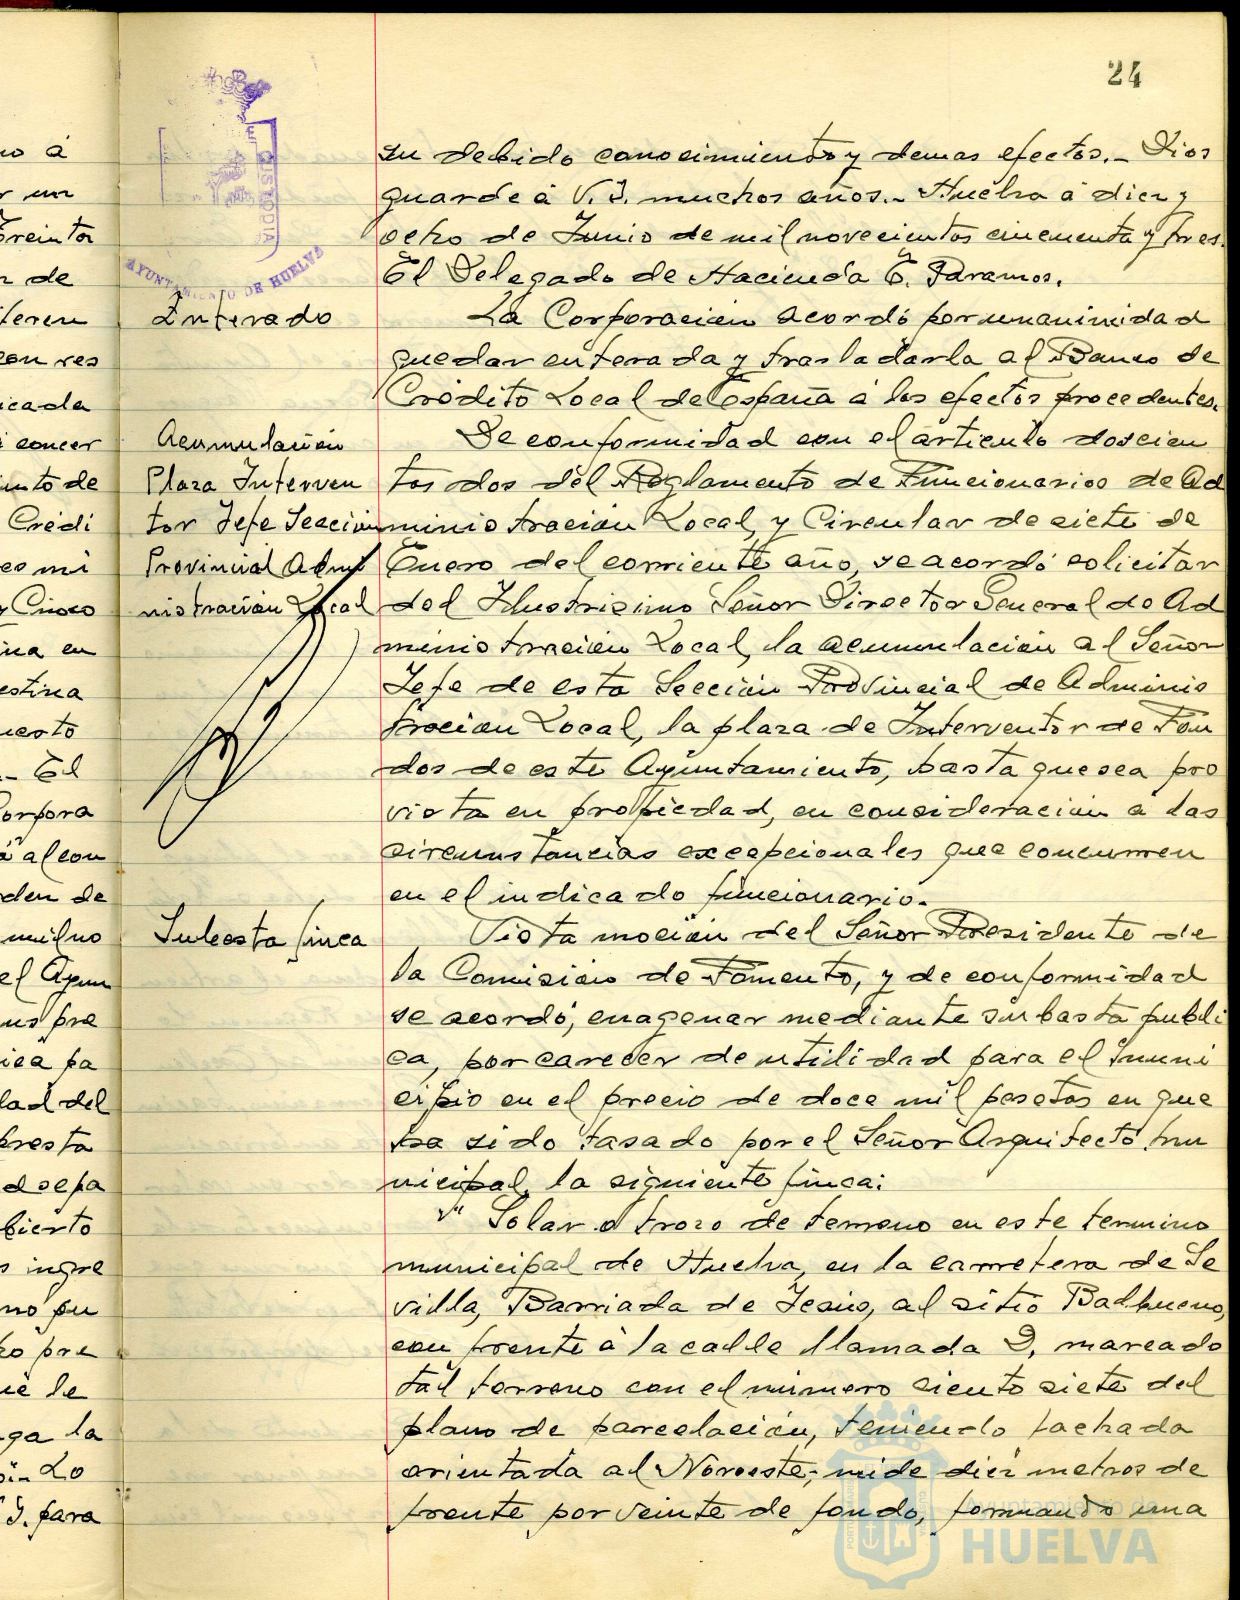 24
su debido conocimiento y demas efectos.- Dios
guarde á V.I. muchos años.- Huelva á diez y
ocho de Junio de mil novecientos cincuenta y tres.
El Delegado de Hacienda E. Páramos.
Enterado
La Corporación acordó por unanimidad
quedar enterada y trasladarla al Banco de
Crédito Local de España á los efectos procedentes.
Acumulación
Plaza Interven
tor Jefe Sección
Provincial Admi
nistración Local
De conformidad con el artículo doscien
tos dos del Reglamento de Funcionarios de Ad
ministración Local, y Circular de siete de
Enero del corriente año, se acordó solicitar
del Ilustrisimo Señor Director General de Ad
ministración Local, la acumulación al Señor
Jefe de esta Sección Provincial de Adminis
tración Local, la plaza de Interventor de Fon
dos de este Ayuntamiento, hasta que sea pro
vista en propiedad, en consideración á las
circunstancias excepcionales que concurren
en el indicado funcionario.
Subasta finca
Vista moción del Señor Presidente de
la Comisión de Fomento, y de conformidad
se acordó, enagenar mediante subasta públi
ca, por carecer de utilidad para el muni
cipio en el precio de doce mil pesetas en que
ha sido tasado por el Señor Arquitecto mu
nicipal, la siguiente finca:
" Solar o trozo de terreno en este termino
municipal de Huelva, en la carretera de Se
villa, Barriada de Jesús, al sitio Balbueno,
con frente á la calle llamada D, marcado
tal terreno con el número ciento siete del
plano de parcelación, teniendo fachada
orientada al Noroeste; mide diez metros de
frente por veinte de fondo, formando una
CUSTODIA
AYUNTAMIENTO DE HUELVA
no á
r un
treinta
n de
iferen
con res
icada
concer
ento de
Crédi
es mi
y Cinco
ina en
estina
uesto
.- El
Corpora
á al con
rden de
mil no
el Ayun
us pre
ica pa
dad del
presta
d sepa
bierto
s ingre
no pu
ho pre
ué le
ga la
Lo
I. para
Ayuntamiento de
HUELVA